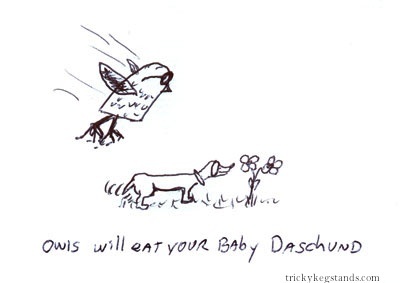 Owls will EAT YOUR BABy DASchUND
trickykegstands.com